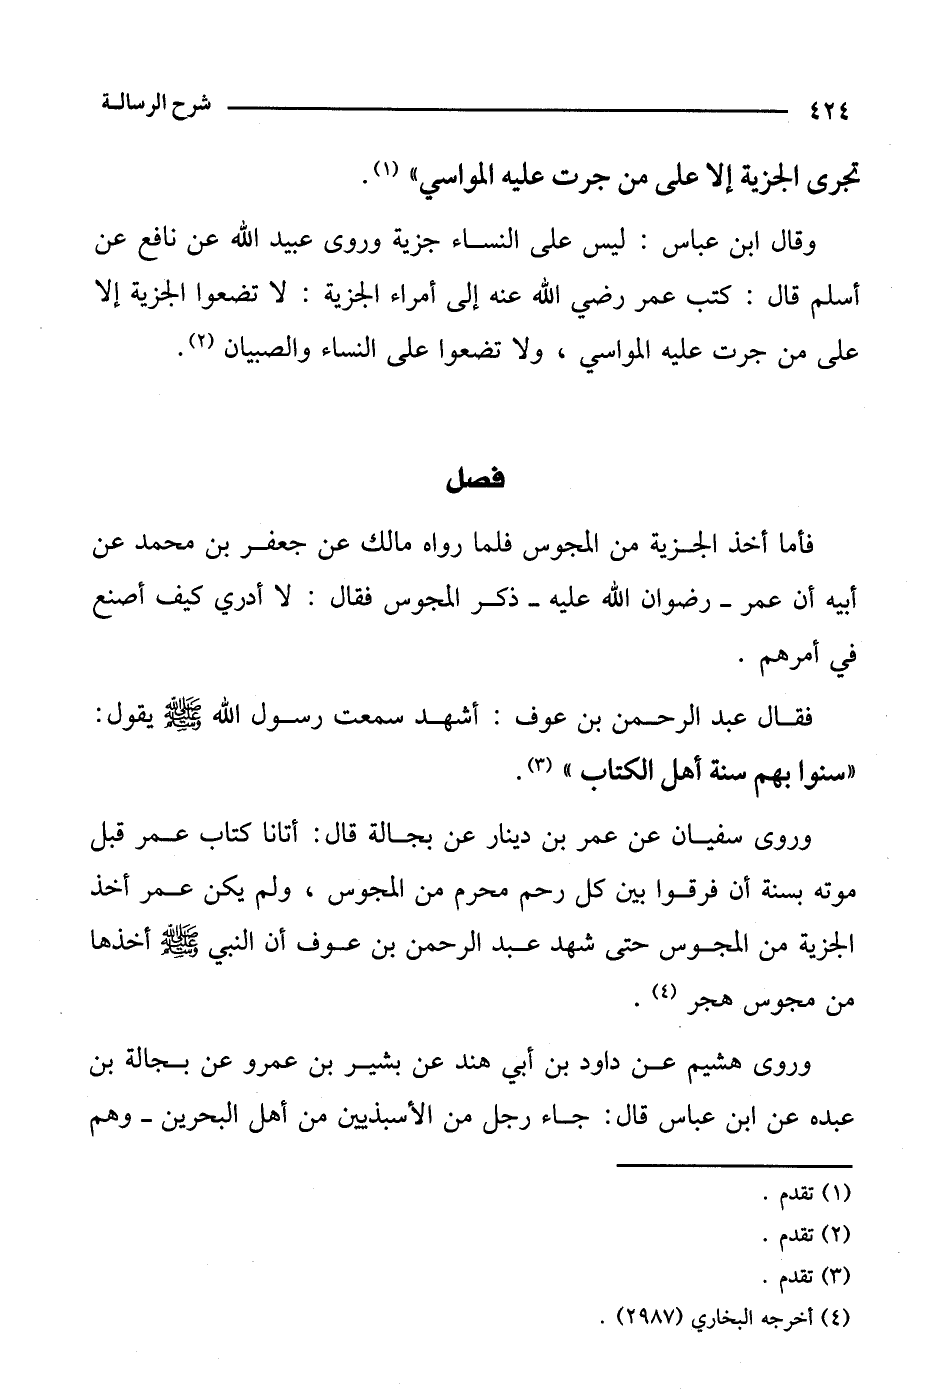 ٤٢٤ شرح الرسالة
تجرى الجزية إلا على من جرت عليه المواسي» (١).
وقال ابن عباس : ليس على النساء جزية وروى عبيد الله عن نافع عن
أسلم قال : كتب عمر رضي الله عنه إلى أمراء الجزية : لا تضعوا الجزية إلا
على من جرت عليه المواسي ، ولا تضعوا على النساء والصبيان (٢).
فصل
فأما أخذ الجزية من المجوس فلما رواه مالك عن جعفر بن محمد عن
أبيه أن عمر ـ رضوان الله عليه ـ ذكر المجوس فقال : لا أدري كيف أصنع
في أمرهم .
فقال عبد الرحمن بن عوف : أشهد سمعت رسول الله ﷺ يقول:
«سنوا بهم سنة أهل الكتاب » (٣).
وروى سفيان عن عمر بن دينار عن بجالة قال: أتانا كتاب عمر قبل
موته بسنة أن فرقوا بين كل رحم محرم من المجوس ، ولم يكن عمر أخذ
الجزية من المجوس حتى شهد عبد الرحمن بن عوف أن النبي ﷺ أخذها
من مجوس هجر (٤) .
وروى هشيم عن داود بن أبي هند عن بشير بن عمرو عن بجالة بن
عبده عن ابن عباس قال: جاء رجل من الأسبذيين من أهل البحرين ـ وهم
(١) تقدم .
(٢) تقدم .
(٣) تقدم .
(٤) أخرجه البخاري (٢٩٨٧) .